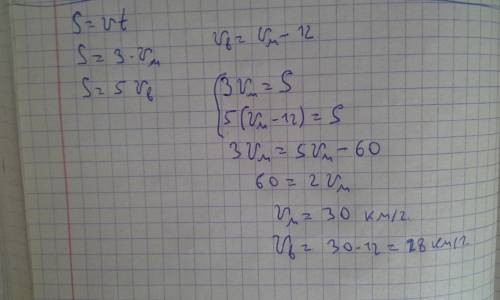 S = vt
S = 3 · vм
S = 5 vв
vв = vм - 12
{ 3 vм = S
5 (vм - 12) = S
3 vм = 5 vм - 60
60 = 2 vм
vм = 30 км/г.
vв = 30 - 12 = 18 км/г.